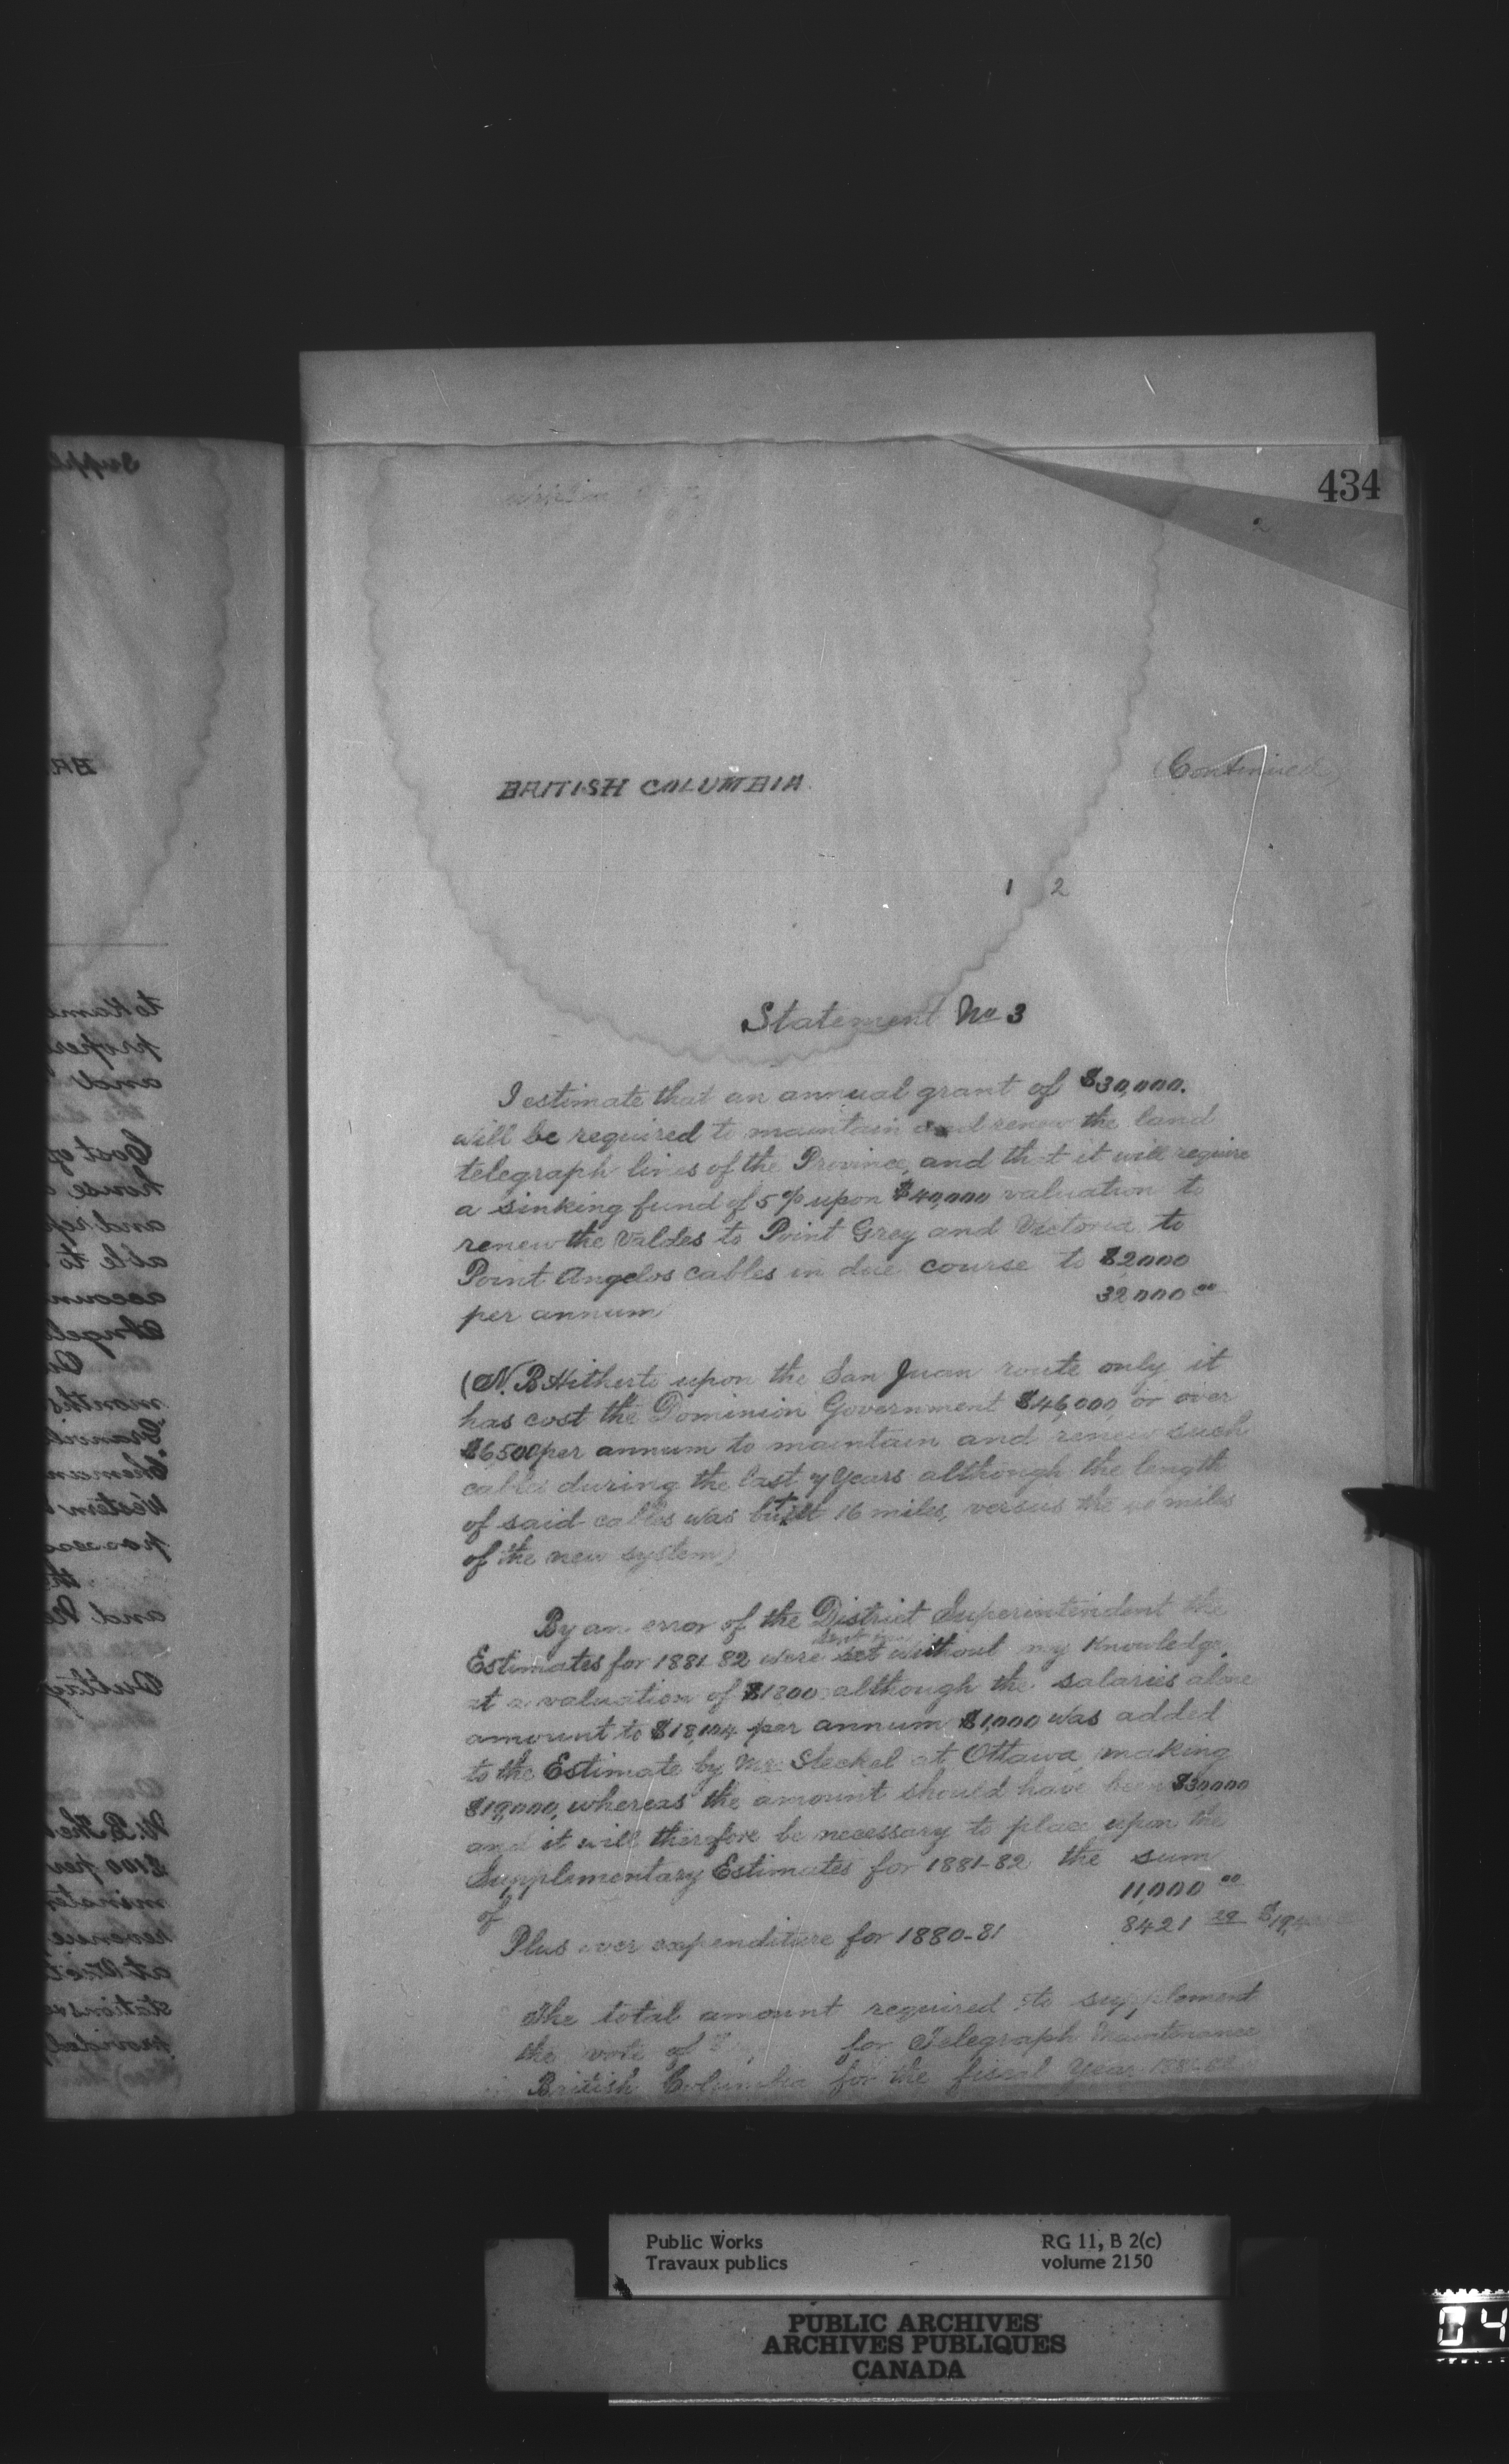 434
2
BRITISH COLUMBIA
(Continued)
1 2
Statement No 3
I estimate that an annual grant of $30,000.
will be required to maintain and renew the land
telegraph lines of the Province, and that it will require
a sinking fund of 5% upon $40,000 valuation to
renew the Valdes to Point Grey and Victoria to
Point Angelos cables in due course to $2000
per annum 32,000 00
(N.B Hitherto upon the San Juan route only it
has cost the Dominion Government $46,000, or over
$6,500 per annum to maintain and renew such
cables during the last 7 years although the length
of said cables was but 16 miles, versus the 40 miles
of the new system)
By an error of the District Superintendent the
Estimates for 1881-82 were sent in without my Knowledge,
at a valuation of $1800 although the salaries alone
amount to per annum $1,000 was added
to the Estimate by Mr Steckel at Ottawa, making
$19,000, whereas the amount should have been $30,000
and it will therefore be necessary to place upon the
Supplementary Estimates for 1881-82 the sum
of 11,000 00
Plus over expenditure for 1880-81 8421 29
The total amount required to supplement
the vote of for Telegraph Maintenance
British Columbia for the fiscal Year 1881-82
Public Works
Travaux publics
RG 11, B 2(c)
volume 2150
PUBLIC ARCHIVES
ARCHIVES PUBLIQUES
CANADA
04